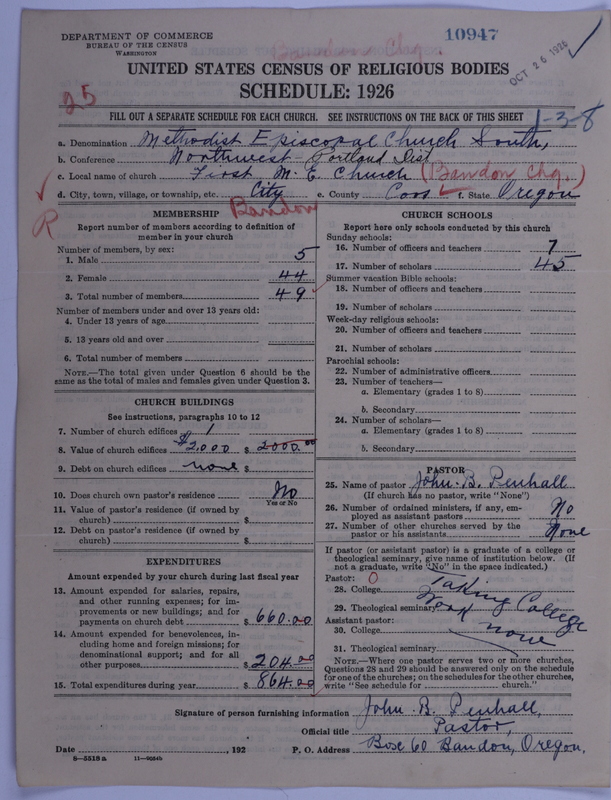 DEPARTMENT OF COMMERCE
BUREAU OF THE CENSUS
WASHINGTON
Bandon Chg.
10947
OCT 26 1926
UNITED STATES CENSUS OF RELIGIOUS BODIES
SCHEDULE: 1926
25
FILL OUT A SEPARATE SCHEDULE FOR EACH CHURCH. SEE INSTRUCTIONS ON THE BACK OF THIS SHEET
1-3-8
a. Denomination Methodist Episcopal Church South,
b. Conference Northwest - Portland Dist.
c. Local name of church First M. E. Church (Bandon Chg.)
d. City, town, village, or township, etc. City e. County Coos f. State Oregon
R
Bandon
MEMBERSHIP
Report number of members according to definition of
member in your church
Number of members, by sex:
1. Male 5
2. Female 44
3. Total number of members 49
Number of members under and over 13 years old:
4. Under 13 years of age
5. 13 years old and over
6. Total number of members
NOTE.—The total given under Question 6 should be the
same as the total of males and females given under Question 3.
CHURCH BUILDINGS
See instructions, paragraphs 10 to 12
7. Number of church edifices 1
8. Value of church edifices $2,000 $ 2000.00
9. Debt on church edifices none $
10. Does church own pastor's residence No
Yes or No
11. Value of pastor's residence (if owned by
church) $
12. Debt on pastor's residence (if owned by
church) $
EXPENDITURES
Amount expended by your church during last fiscal year
13. Amount expended for salaries, repairs,
and other running expenses; for im-
provements or new buildings; and for
payments on church debt $ 660.00
14. Amount expended for benevolences, in-
cluding home and foreign missions; for
denominational support; and for all
other purposes $ 204.00
15. Total expenditures during year $ 864.00
CHURCH SCHOOLS
Report here only schools conducted by this church
Sunday schools:
16. Number of officers and teachers 7
17. Number of scholars 45
Summer vacation Bible schools:
18. Number of officers and teachers
19. Number of scholars
Week-day religious schools:
20. Number of officers and teachers
21. Number of scholars
Parochial schools:
22. Number of administrative officers
23. Number of teachers—
a. Elementary (grades 1 to 8)
b. Secondary
24. Number of scholars—
a. Elementary (grades 1 to 8)
b. Secondary
PASTOR
25. Name of pastor John. B. Penhall
(If church has no pastor, write "None")
26. Number of ordained ministers, if any, em-
ployed as assistant pastors No
27. Number of other churches served by the
pastor or his assistants None
If pastor (or assistant pastor) is a graduate of a college or
theological seminary, give name of institution below. (If
not a graduate, write "No" in the space indicated.)
Pastor: O
28. College Taking College
29. Theological seminary work
Assistant pastor:
30. College none
31. Theological seminary
NOTE.—Where one pastor serves two or more churches,
Questions 28 and 29 should be answered only on the schedule
for one of the churches; on the schedules for the other churches,
write "See schedule for church."
Signature of person furnishing information John. B. Penhall,
Official title Pastor,
Date , 192 P. O. Address Box 60 Bandon, Oregon.
8—5518a 11—9054b